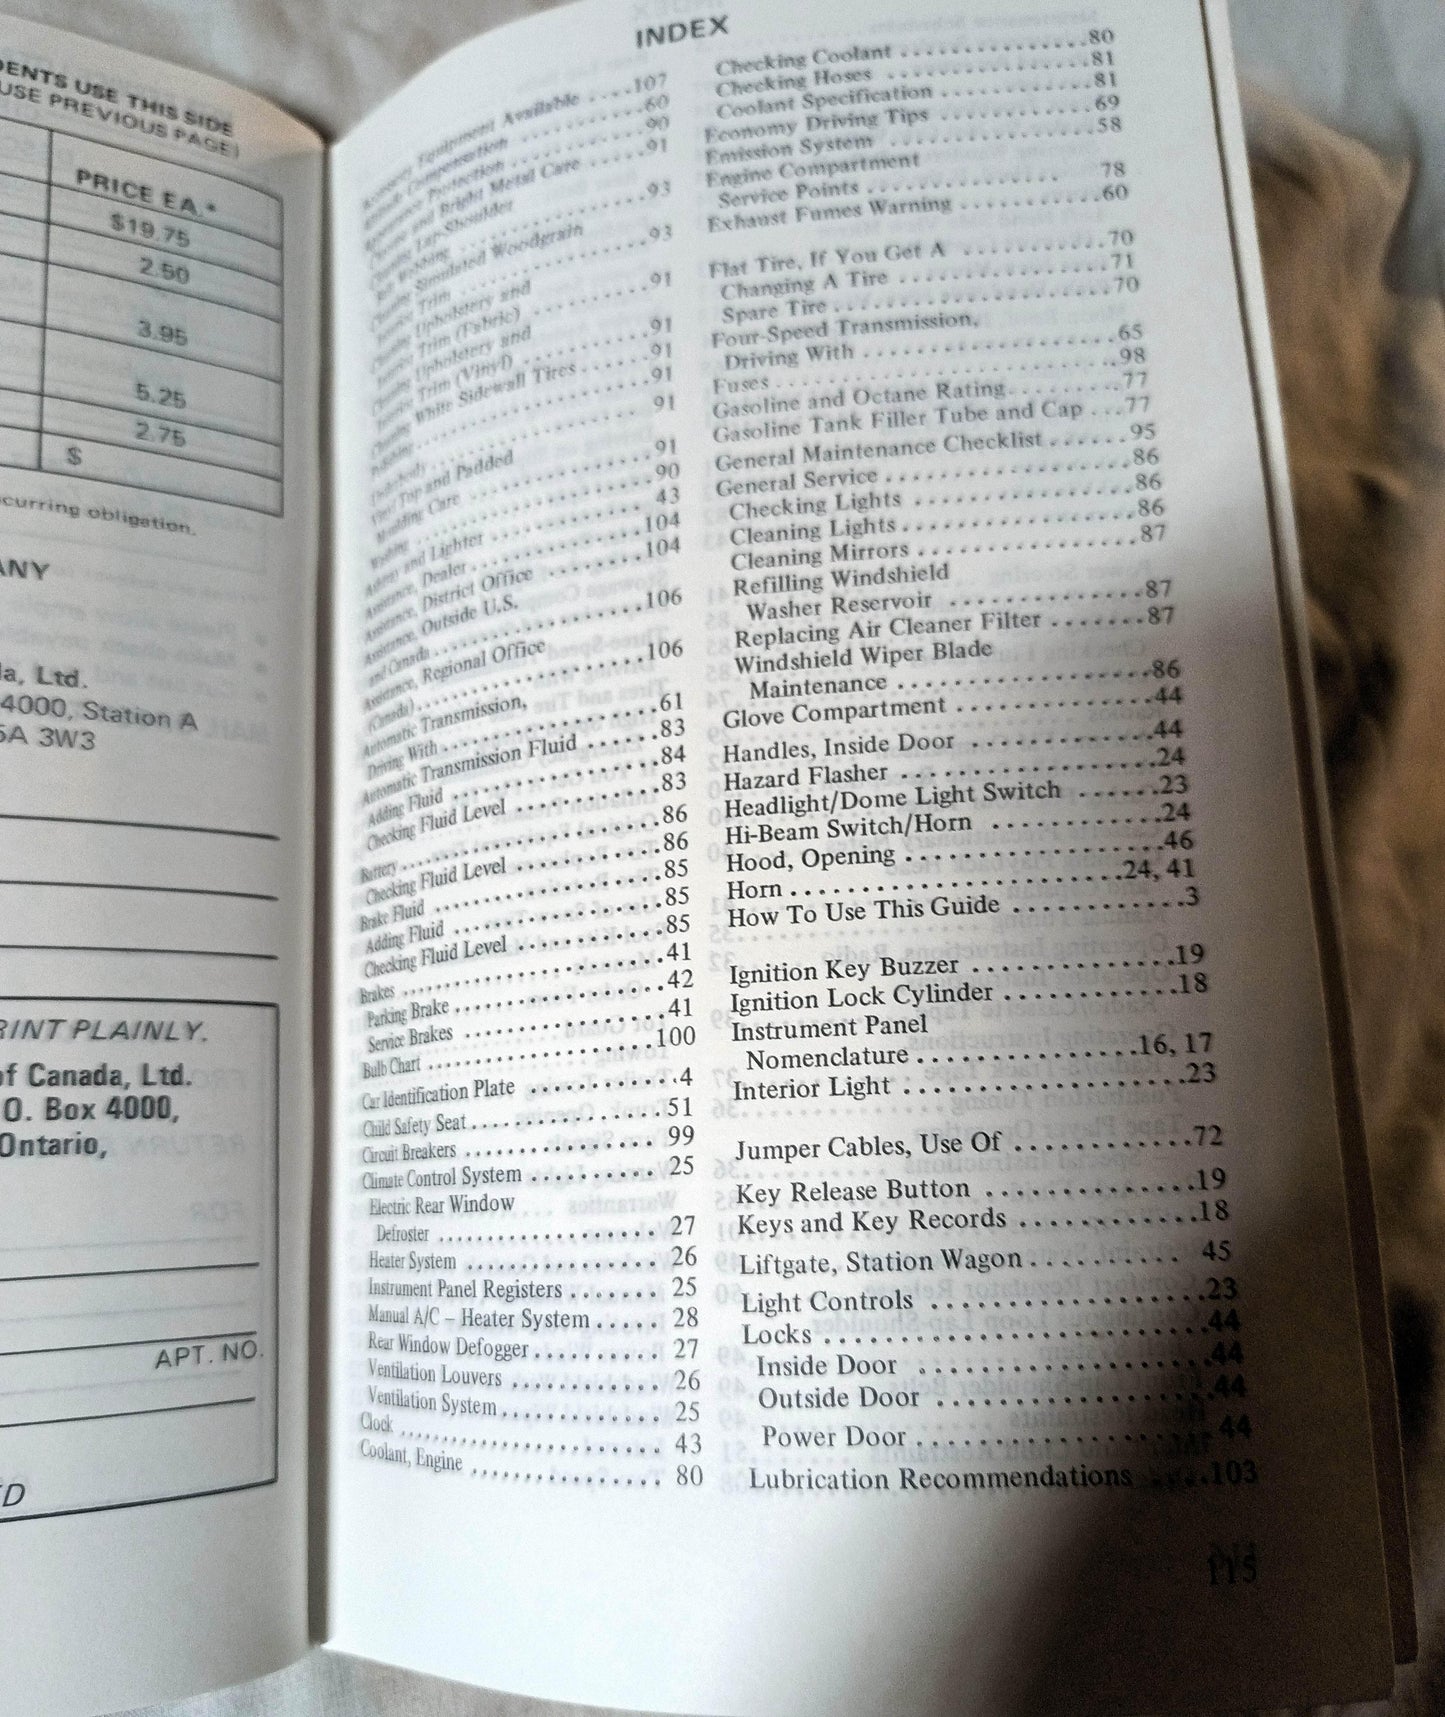 DENTS USE THIS SIDE
USE PREVIOUS PAGE)
PRICE EA.*
$19.75
2.50
3.95
5.25
2.75
$
curring obligation.
ANY
a, Ltd.
4000, Station A
5A 3W3
RINT PLAINLY.
of Canada, Ltd.
O. Box 4000,
Ontario,
APT. NO.
INDEX
Accessory Equipment Available ....107
Altitude Compensation ..........60
Appearance Protection ..........90
Chrome and Bright Metal Care ......91
Cleaning Lap-Shoulder
Belt Webbing ..............93
Cleaning Simulated Woodgrain
Exterior Trim ..............93
Cleaning Upholstery and
Interior Trim (Fabric) ..........91
Cleaning Upholstery and
Interior Trim (Vinyl) ..........91
Cleaning White Sidewall Tires ......91
Polishing ..................91
Underbody ................91
Vinyl Top and Padded
Moulding Care ..............91
Washing ..................90
Ashtray and Lighter ............43
Assistance, Dealer ..............104
Assistance, District Office ........104
Assistance, Outside U.S.
and Canada ................106
Assistance, Regional Office
(Canada) ..................106
Automatic Transmission,
Driving With ..............61
Automatic Transmission Fluid ......83
Adding Fluid ................84
Checking Fluid Level ..........83
Battery ....................86
Checking Fluid Level ..........86
Brake Fluid ..................85
Adding Fluid ................85
Checking Fluid Level ..........85
Brakes ....................41
Parking Brake ................42
Service Brakes ..............41
Bulb Chart ..................100
Car Identification Plate ..........4
Child Safety Seat ..............51
Circuit Breakers ..............99
Climate Control System .......... 25
Electric Rear Window
Defroster .................. 27
Heater System ................ 26
Instrument Panel Registers ....... 25
Manual A/C – Heater System ..... 28
Rear Window Defogger .......... 27
Ventilation Louvers ............ 26
Ventilation System ............ 25
Clock .................... 43
Coolant, Engine .............. 80
Checking Coolant ..............80
Checking Hoses ..............81
Coolant Specification ............81
Economy Driving Tips ............69
Emission System ..............58
Engine Compartment
Service Points .............. 78
Exhaust Fumes Warning ..........60
Flat Tire, If You Get A ..........70
Changing A Tire ..............71
Spare Tire ..................70
Four-Speed Transmission,
Driving With ................65
Fuses ......................98
Gasoline and Octane Rating ........77
Gasoline Tank Filler Tube and Cap ...77
General Maintenance Checklist ......95
General Service ................86
Checking Lights ..............86
Cleaning Lights ..............86
Cleaning Mirrors ..............87
Refilling Windshield
Washer Reservoir ............87
Replacing Air Cleaner Filter .......87
Windshield Wiper Blade
Maintenance ................86
Glove Compartment ............44
Handles, Inside Door ............44
Hazard Flasher ................24
Headlight/Dome Light Switch ......23
Hi-Beam Switch/Horn ............24
Hood, Opening ................46
Horn ......................24, 41
How To Use This Guide ............3
Ignition Key Buzzer ..............19
Ignition Lock Cylinder ............18
Instrument Panel
Nomenclature ..............16, 17
Interior Light ................23
Jumper Cables, Use Of ............72
Key Release Button ..............19
Keys and Key Records ............18
Liftgate, Station Wagon .......... 45
Light Controls ................23
Locks ......................44
Inside Door ................44
Outside Door ................44
Power Door ................44
Lubrication Recommendations ....103
115